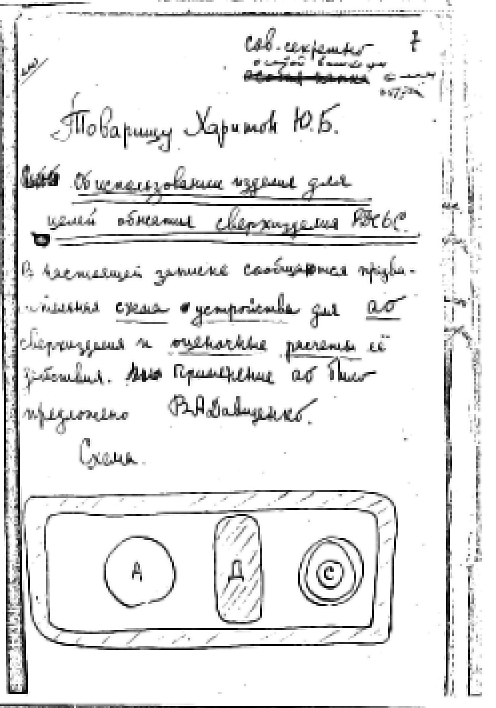 Сов. секретно 7
особой важности
особая папка
Товарищу Харитон Ю.Б.
Об использовании изделия для
целей обжатия сверхизделия РДС-6С.
В настоящей записке сообщаются предва-
рительная схема устройства для АО
сверхизделия и оценочные расчеты её
действия. Применение АО было
предложено В.А. Давиденко.
Схема.
А Д С